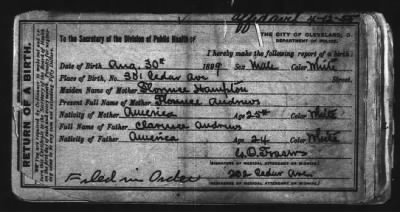 Affidavit 4-12-55
To the Secretary of the Division of Public Health of
THE CITY OF CLEVELAND, O.
DEPARTMENT OF POLICE.
I hereby make the following report of a birth:
Date of Birth Aug. 30th 1889 Sex Male Color White
Place of Birth, No. 381 Cedar Ave Street
Maiden Name of Mother Florence Hampton
Present Full Name of Mother Florence Andrews
Nativity of Mother America Age 25th Color White
Full Name of Father Clarence Andrews
Nativity of Father America Age 24 Color White
(SIGNATURE OF MEDICAL ATTENDANT OR MIDWIFE.)
202 Cedar Ave.
(RESIDENCE OF MEDICAL ATTENDANT OR MIDWIFE.)
Filed in Order
RETURN OF A BIRTH.